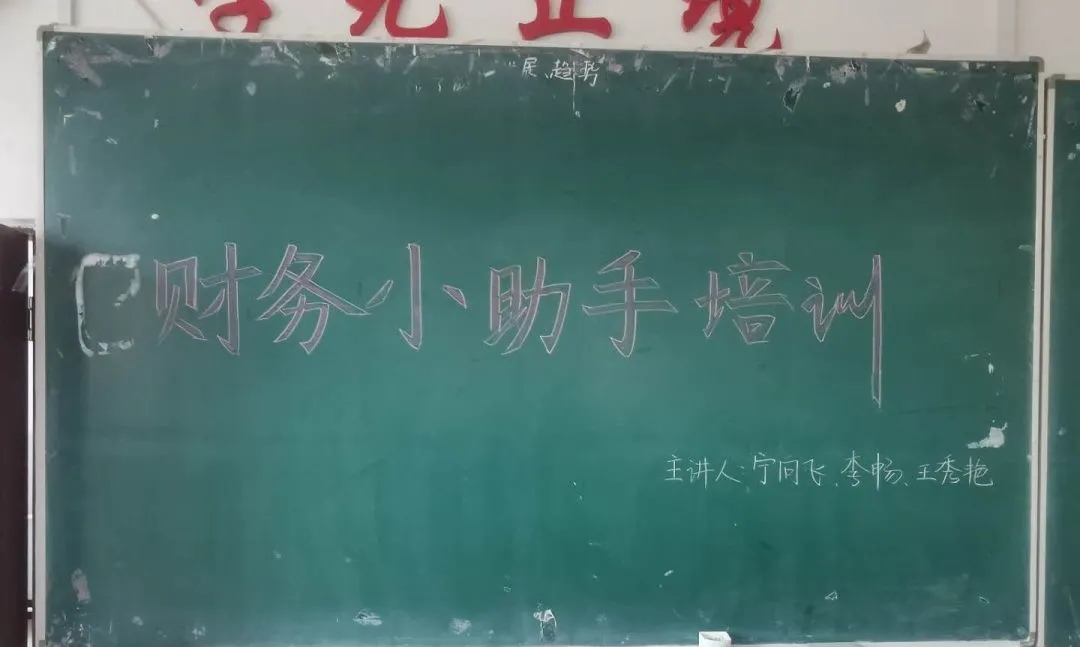 展、趋势
财务小助手培训
主讲人:宁向飞、李畅、王秀艳